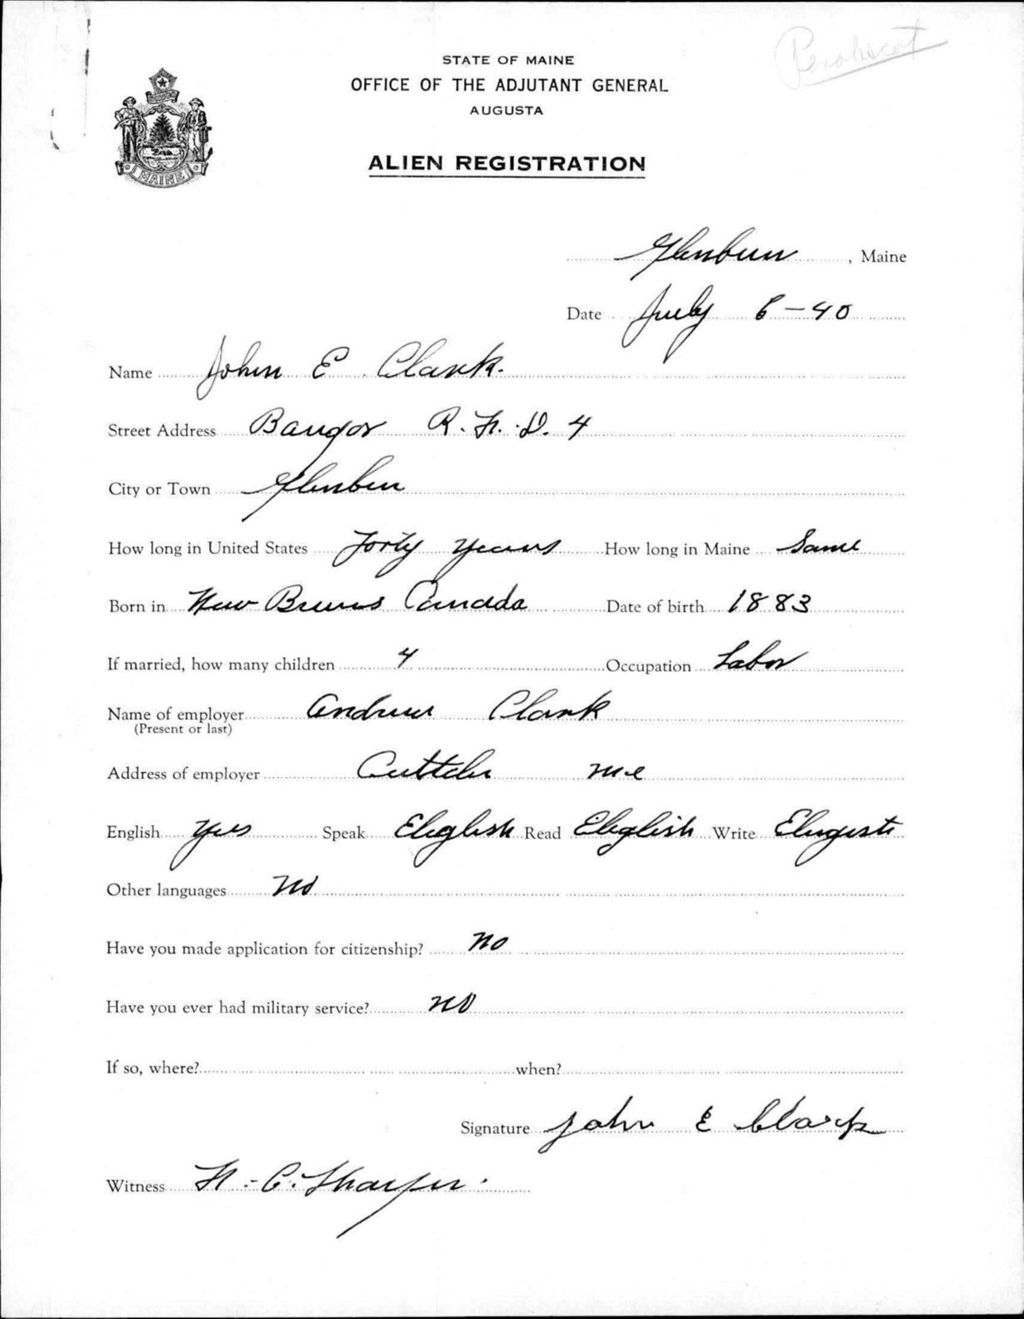 Penobscot
STATE OF MAINE
OFFICE OF THE ADJUTANT GENERAL
AUGUSTA
MAINE
ALIEN REGISTRATION
Glenburn, Maine
Date July 6-40
Name John E Clark.
Street Address Bangor R.F.D. 4
City or Town Glenburn
How long in United States Forty Years How long in Maine Same
Born in New Bruns Canada Date of birth 1883
If married, how many children 4 Occupation Labor
Name of employer Andrew Clark
(Present or last)
Address of employer Cuttler Me
English Yes Speak Elnglish Read Elnglish Write
Other languages No
Have you made application for citizenship? No
Have you ever had military service? No
If so, where? when?
Signature John E Clark
Witness H.C. Sharper.